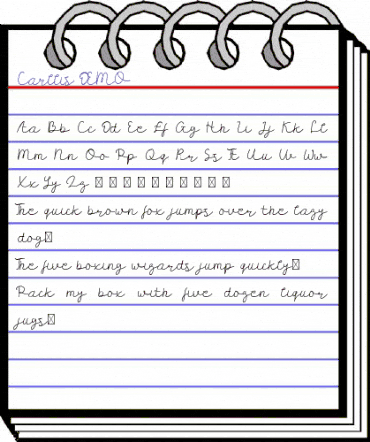 Carttis DEMO
Aa Bb Cc Dd Ee Ff Gg Hh Ii Jj Kk Ll
Mm Nn Oo Pp Qq Rr Ss Tt Uu Vv Ww
Xx Yy Zz □ □ □ □ □ □ □ □ □ □
The quick brown fox jumps over the lazy
dog□
The five boxing wizards jump quickly□
Pack my box with five dozen liquor
jugs□